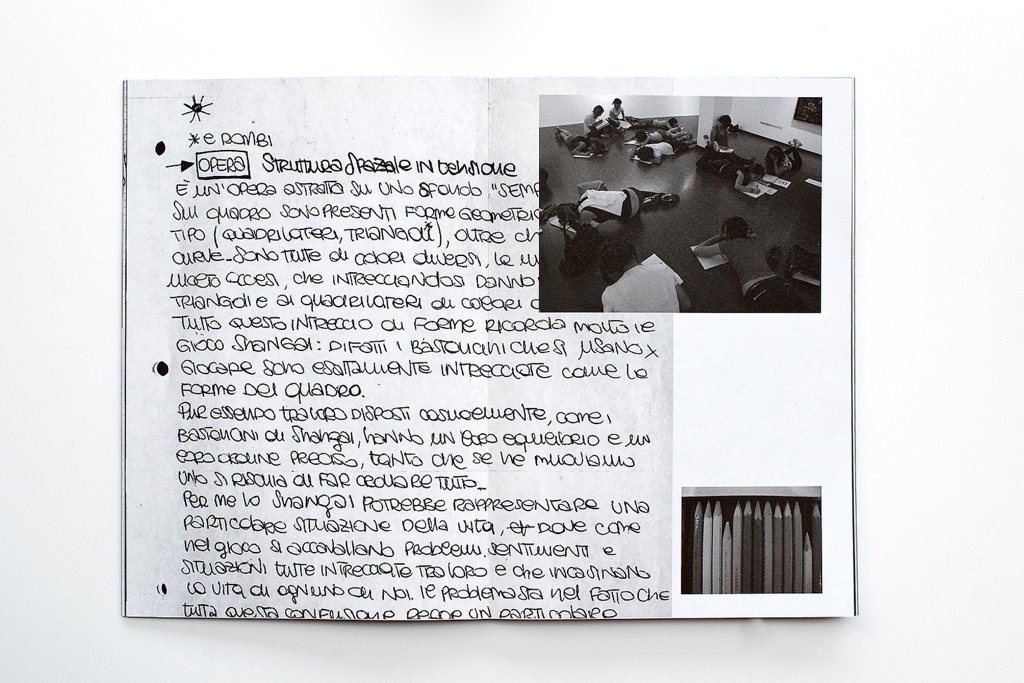 * E ROMBI
→ OPERA STRUTTURA SPAZIALE IN TENSIONE
È UN'OPERA ASTRATTA SU UNO SFONDO "SEMP
SUL QUADRO SONO PRESENTI FORME GEOMETRIC
TIPO (QUADRILATERI, TRIANGOLI*), OLTRE CH
CURVE. SONO TUTTE DI COLORI DIVERSI, LE
MOLTO ACCESI, CHE INTRECCIANDOSI DANNO
TRIANGOLI E AI QUADRILATERI DI COLORI
TUTTO QUESTO INTRECCIO DI FORME RICORDA MOLTO IL
GIOCO SHANGAI: DIFATTI I BASTONCINI CHE SI USANO X
GIOCARE SONO ESATTAMENTE INTRECCIATE COME LE
FORME DEL QUADRO.
PUR ESSENDO TRA LORO DISPOSTI CASUALMENTE, COME I
BASTONCINI DI SHANGAI, HANNO UN LORO EQUILIBRIO E UN
LORO ORDINE PRECISO, TANTO CHE SE NE MUOVIAMO
UNO SI RISCHIA DI FAR CROLLARE TUTTO.
PER ME LO SHANGAI POTREBBE RAPPRESENTARE UNA
PARTICOLARE SITUAZIONE DELLA VITA, DOVE COME
NEL GIOCO SI ACCAVALLANO PROBLEMI, SENTIMENTI E
SITUAZIONI TUTTE INTRECCIATE TRA LORO E CHE INCASINANO
LA VITA DI OGNUNO DI NOI. IL PROBLEMA STA NEL FATTO CHE
TUTTA QUESTA CONFUSIONE SEGUE UN PARTICOLARE